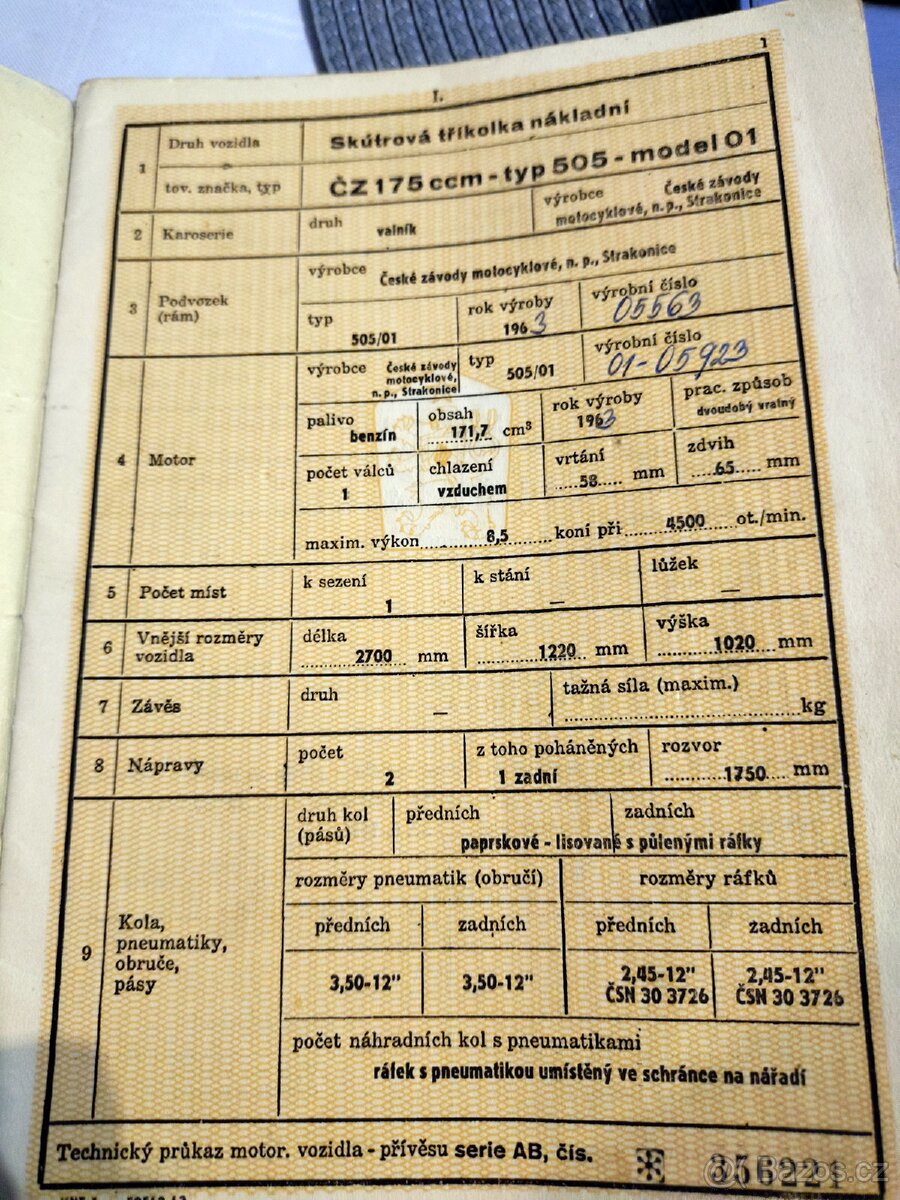 1
I.
1 Druh vozidla Skútrová tříkolka nákladní
tov. značka, typ ČZ 175 ccm - typ 505 - model 01
2 Karoserie druh valník výrobce České závody motocyklové, n. p., Strakonice
3 Podvozek (rám) výrobce České závody motocyklové, n. p., Strakonice
typ 505/01 rok výroby 1963 výrobní číslo 05563
4 Motor výrobce České závody motocyklové, n. p., Strakonice typ 505/01 výrobní číslo 01-05923
palivo benzín obsah 171,7 cm³ rok výroby 1963 prac. způsob dvoudobý vratný
počet válců 1 chlazení vzduchem vrtání 58 mm zdvih 65 mm
maxim. výkon 8,5 koní při 4500 ot./min.
5 Počet míst k sezení 1 k stání — lůžek —
6 Vnější rozměry vozidla délka 2700 mm šířka 1220 mm výška 1020 mm
7 Závěs druh — tažná síla (maxim.) kg
8 Nápravy počet 2 z toho poháněných 1 zadní rozvor 1750 mm
9 Kola, pneumatiky, obruče, pásy
druh kol (pásů) předních zadních
paprskové - lisované s půlenými ráfky
rozměry pneumatik (obručí) rozměry ráfků
předních zadních předních zadních
3,50-12" 3,50-12" 2,45-12" 2,45-12"
ČSN 30 3726 ČSN 30 3726
počet náhradních kol s pneumatikami
ráfek s pneumatikou umístěný ve schránce na nářadí
Technický průkaz motor. vozidla - přívěsu serie AB, čís. 356221
Bazos.cz